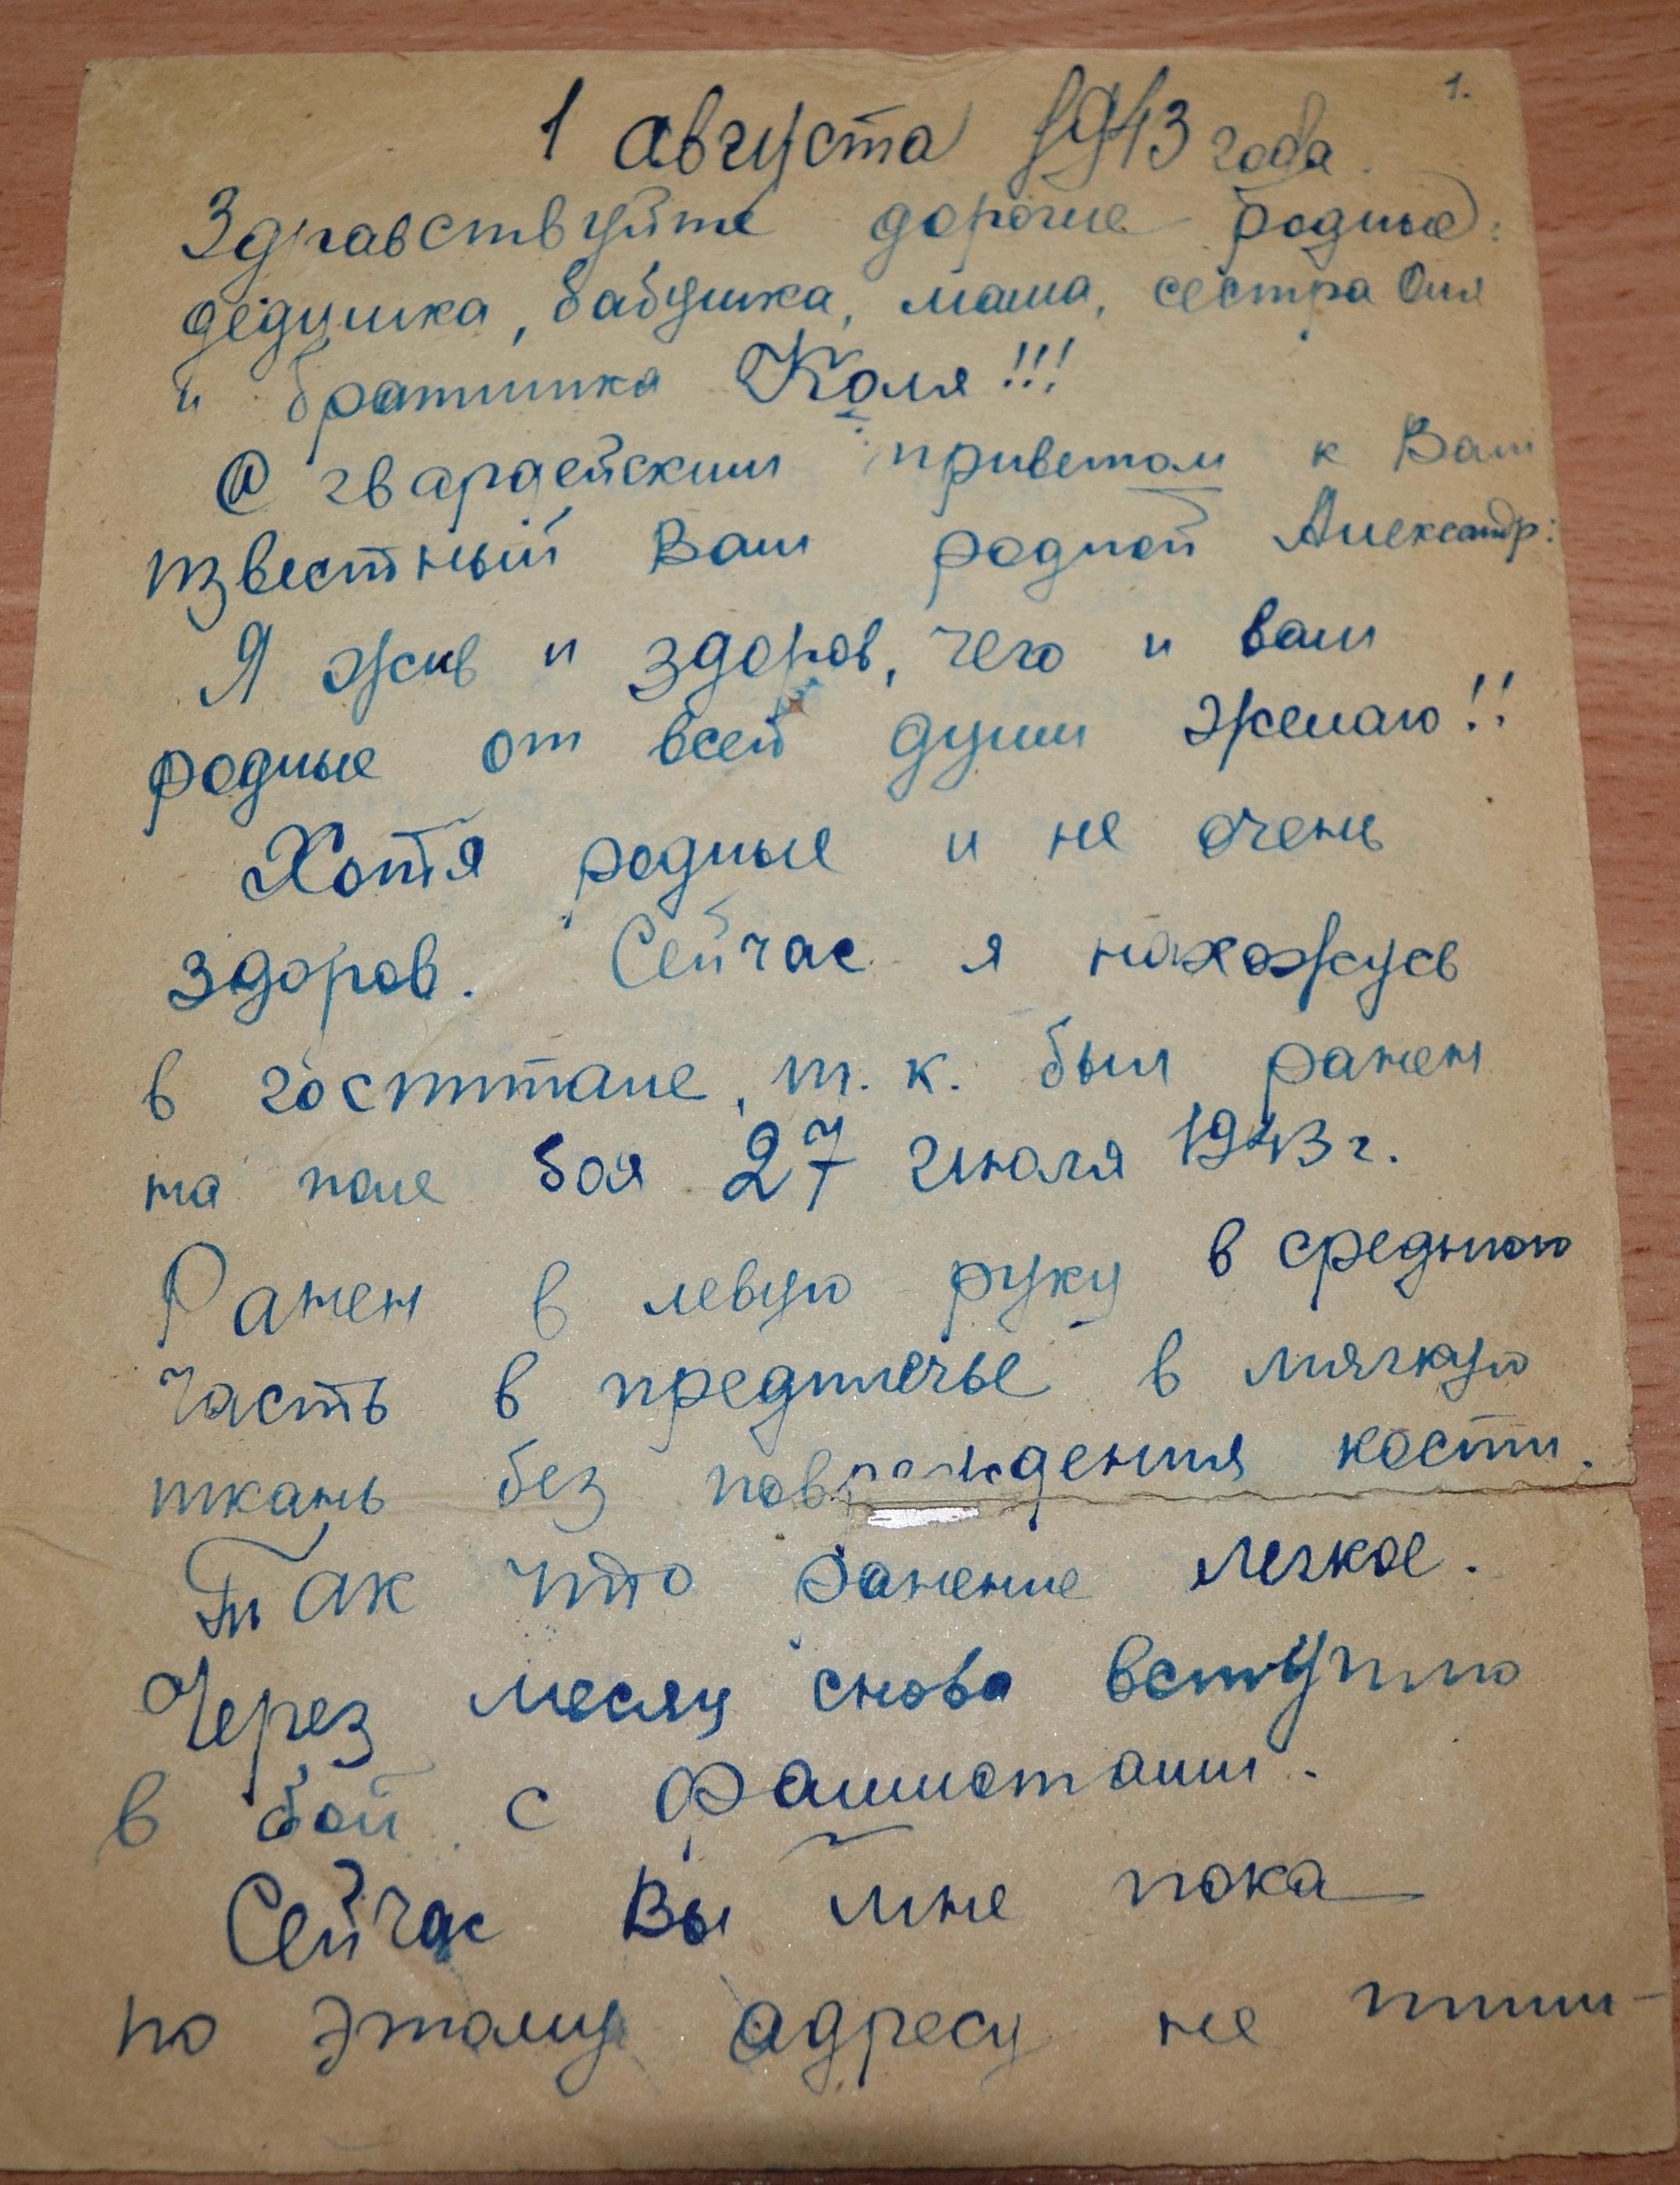 1.
1 августа 1943 года.
Здравствуйте дорогие родные:
дедушка, бабушка, мама, сестра Оля
и братишка Коля!!!
С гвардейским приветом к Вам
известный Вам родной Александр:
Я жив и здоров, чего и вам
родные от всей души желаю!!
Хотя родные и не очень
здоров. Сейчас я нахожусь
в госпитале, т. к. был ранен
на поле боя 27 июля 1943 г.
Ранен в левую руку в среднюю
часть в предплечье в мягкую
ткань без повреждения кости.
Так что ранение легкое.
Через месяц снова вступлю
в бой с фашистами.
Сейчас Вы мне пока
по этому адресу не пиши-